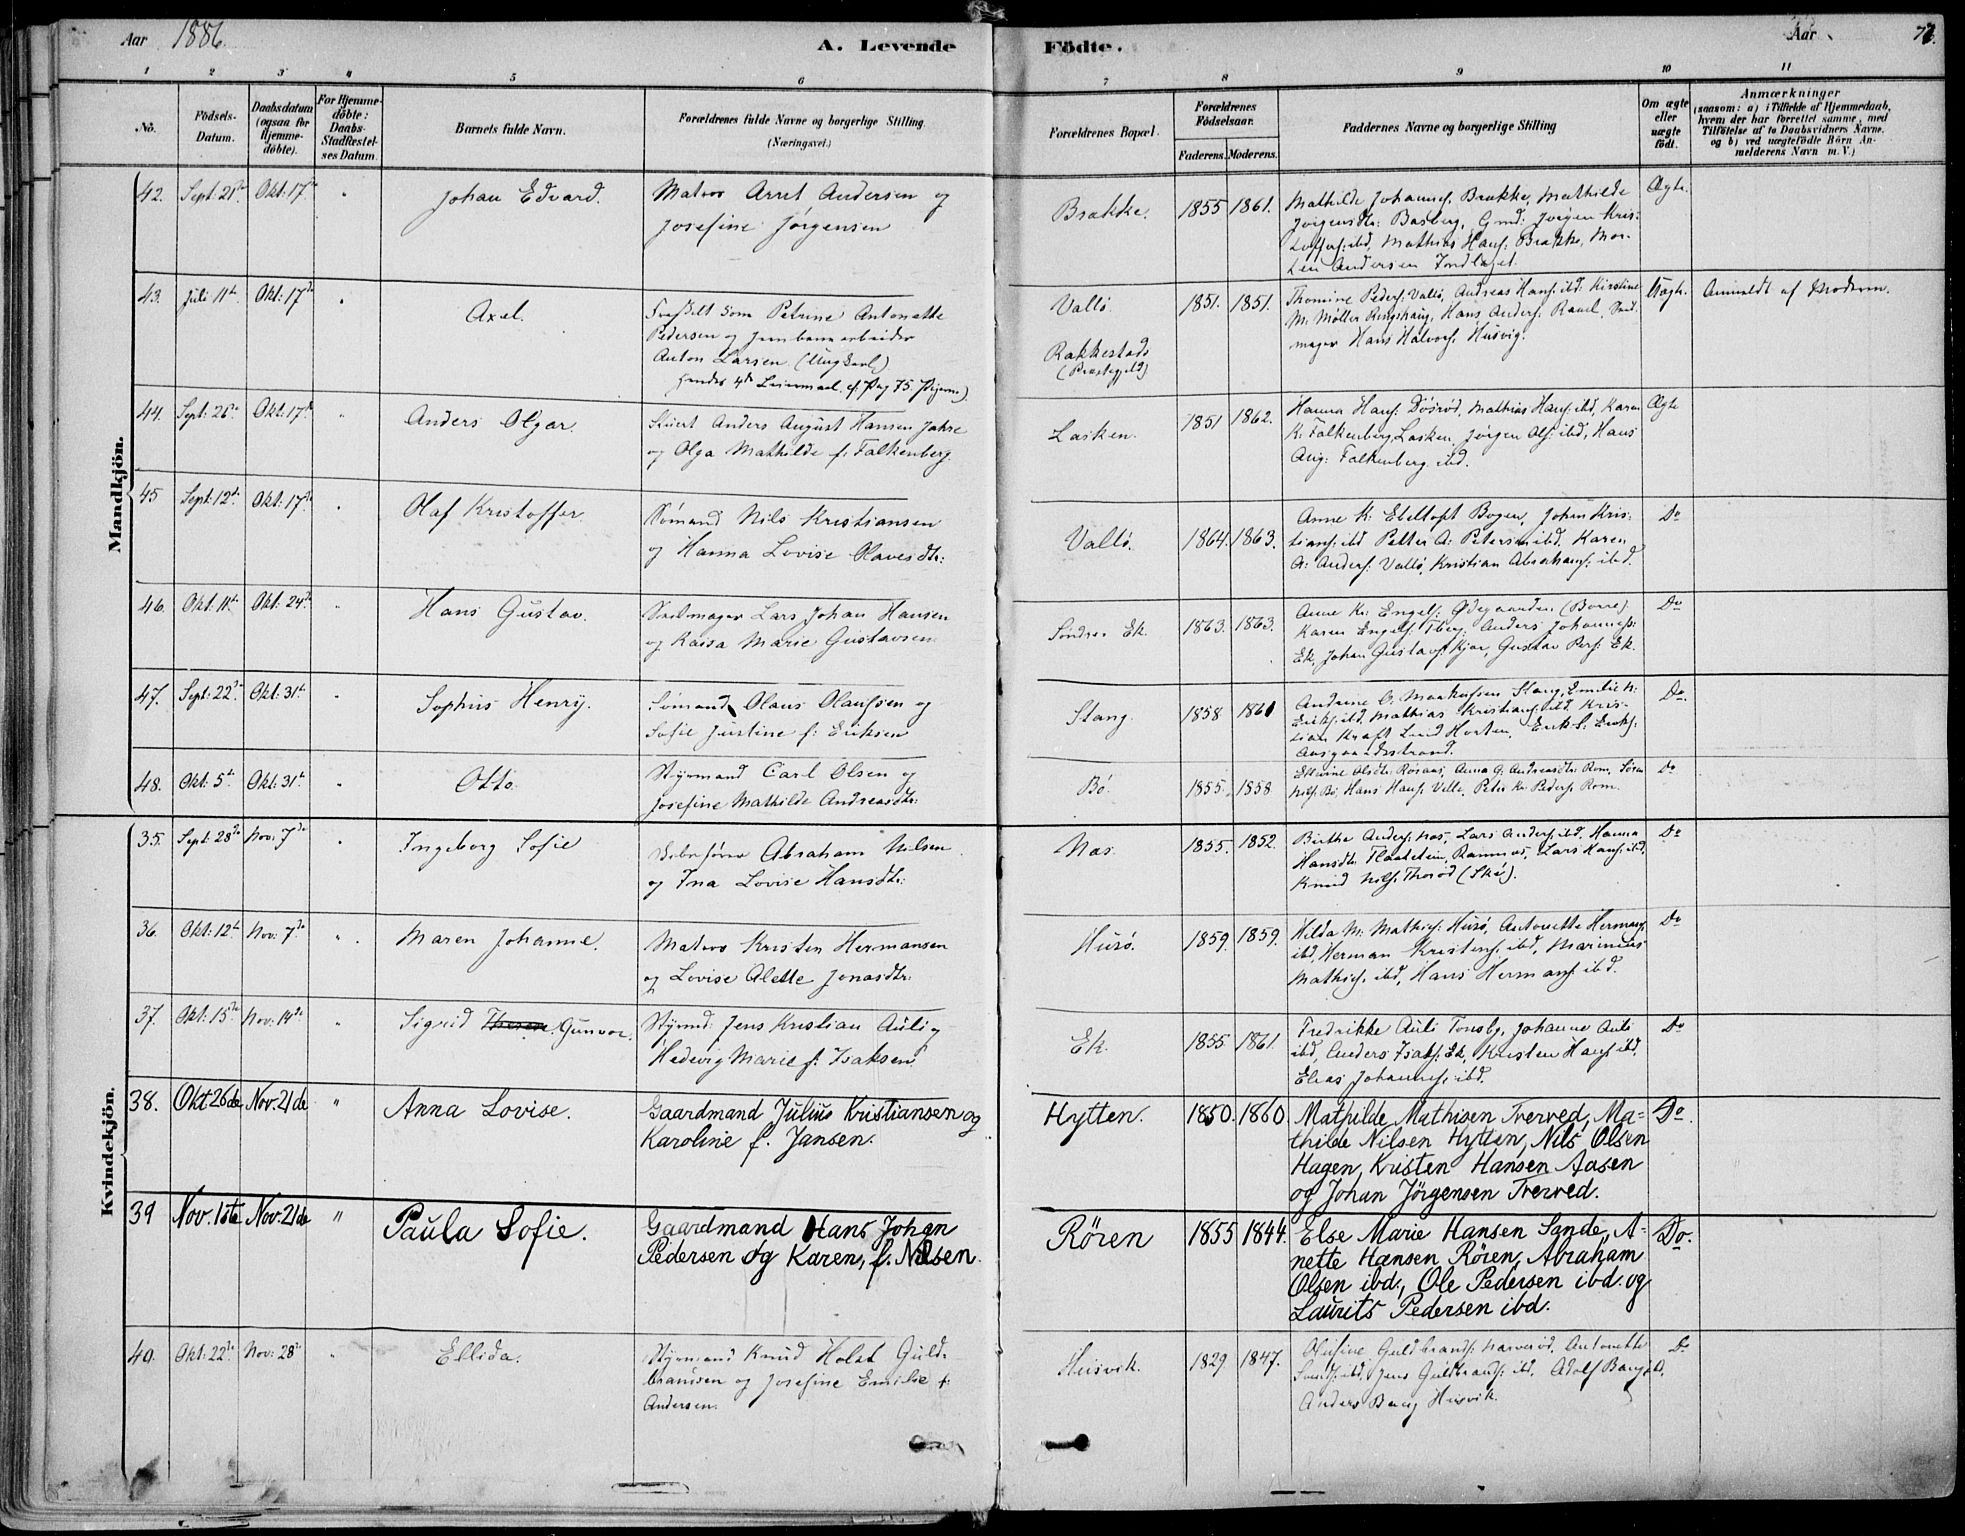 Aar 1886. A. Levende Födte. Aar 77.
1 2 3 4 5 6 7 8 9 10 11
No. Födsels-Datum. Daabsdatum (ogsaa for Hjemme-döbte). For Hjemme-döbte: Daabs-Stadfæstelses Datum. Barnets fulde Navn. Forældrenes fulde Navne og borgerlige Stilling (Næringsvei.) Forældrenes Bopæl. Forældrenes Födselsaar. Faderens. Moderens. Faddernes Navne og borgerlige Stilling Om ægte eller uægte födt. Anmærkninger (saasom: a) i Tilfælde af Hjemmedaab, hvem der har forrettet samme, med Tilföielse af to Daabsvidners Navne, og b) ved uægtefödte Börn Anmelderens Navn m. V.)
Mandkjön.
42. Sept: 21de Okt: 17de " Johan Edvard. Matros Arnt Andersen og
Josefine Jørgensen
Brække. 1855 1861. Mathilde Johannes: Brække, Mathilde
Jørgensdtr: Basberg, Gmd: Jørgen Kris:
toffers: ibd, Mathias Hans: Brække, Mor-
ten Andersen
Ægte.
43. Juli 11te Okt: 17de " Axel. Fraskilt Kone Petrine Antonette
Pedersen og Jernbanearbeider
Anton Larsen (Ungkarl)
hendes 4de Leiermaal. cf. Pag 75.
Vallø. Rakkestads (Præstegjeld) 1851. 1851. Thomine Peders: Vallø, Andreas Hans: ibd. Kirstine
M: Møller Ringshaug, Hans Anders: Ravel,
mager Hans Halvors: Husvig.
Uægte. Anmeldt af Moderen.
44. Sept: 26de Okt: 17de " Anders Olgar. Anders August Hansen Jahre
og Olga Mathilde f: Falkenberg.
Lasken. 1851 1862. Hanna Hans: Døsrød, Mathias Hans: ibd, Karen
K: Falkenberg Lasken, Jørgen Ols: ibd, Hans
Aug: Falkenberg ibd.
Ægte
45 Sept: 12te Okt: 17de " Olaf Kristoffer. Sømand Nils Kristiansen
og Hanna Lovise Olavesdtr:
Vallø. 1864. 1863. Anne K: Ebeltoft Bogen, Johan Kris:
tians: ibd Petter A: Petersen ibd, Karen
A: Anders: Vallø, Kristian Abrahams: ibd.
Do
46. Okt: 11te Okt: 24de " Hans Gustav. Seilmager Lars Johan Hansen
og Kaisa Marie Gustavsen
Søndre Ek. 1863. 1863. Anne Kr: Engels: Ødegaarden (Borre)
Karen Engels: Anders Johannes:
Ek, Johan Gustavs: Kjær, Gustav Pers: Ek.
Do
47. Sept: 22de Okt: 31te " Sophus Henry. Sømand Olaus Olaussen og
Sofie Justine f: Eriksen
Stang. 1858 1861 Andrine O: Markussen Stang, Emilie N:
Eriks: ibd, Mathias Kristians: ibd, Kris-
tian Kraft Lund Horten, Erik S: Eriks:
Aasgaardsstrand.
Do.
48. Okt: 5te Okt: 31te " Otto. Styrmand Carl Olsen og
Josefine Mathilde Andreasdtr:
Bø. 1855. 1858 Olsdtr: Røraas, Anna G: Andreasdtr: Rom, Søren
Nils: Bø, Hans Hans: Velle, Peter Kr: Peders: Rom.
Do
Kvindekjön.
35. Sept: 28de Nov: 7de " Ingeborg Sofie Abraham Nilsen
og Ina Lovise Hansdtr:
Næs. 1855. 1852. Birthe Anders: Næs, Lars Anders: ibd, Hanna
Hansdtr: Flaatetein, Ramnæs, Lars Hans: ibd,
Knud Nils: Thorød (Skø).
Do
36. Okt: 12te Nov: 7de " Maren Johanne. Matros Kristen Hermansen
og Lovise Alette Jonasdtr:
Husø. 1859. 1859. Hilda M: Mathis: Husø, Antonette Hermans:
ibd, Herman Kristens: ibd, Marinius
Mathis: ibd, Hans Hermans: ibd.
Do
37. Okt: 15de Nov: 14de " Sigrid Gunvor. Styrmd: Jens Kristian Auli og
Hedevig Marie f: Isaksen
Ek. 1855 1861. Fredrikke Auli Tønsbg, Johanne Auli
ibd, Anders Isaks: Ek, Kristen Hans: ibd,
Elias Johannes: ibd.
Do
38. Okt 26de Nov. 21de " Anna Lovise. Gaardmand Julius Kristiansen og
Karoline f. Jansen.
Hytten. 1850. 1860. Mathilde Mathisen Tverved, Ma=
thilde Nilsen Hytten, Nils Olsen
Hagen, Kristen Hansen Aasen
og Johan Jörgensen Tverved.
Do.
39 Nov. 1ste Nov. 21de " Paula Sofie. Gaardmand Hans Johan
Pedersen og Karen, f. Nilsen.
Rören 1855 1844. Else Marie Hansen Sande, A-
nette Hansen Rören, Abraham
Olsen ibd., Ole Pedersen ibd. og
Laurits Pedersen ibd.
Do.
40. Okt: 22de Nov: 28de " Ellida. Styrmand Knud Holst Guld-
brandsen og Josefine Emilie f:
Andersen.
Husvik. 1829 1847. Olufine Guldbrands: Narverød, Antonette
ibd, Jens Guldbrands: ibd, Adolf Baug
Anders Baug Husvik.
Do